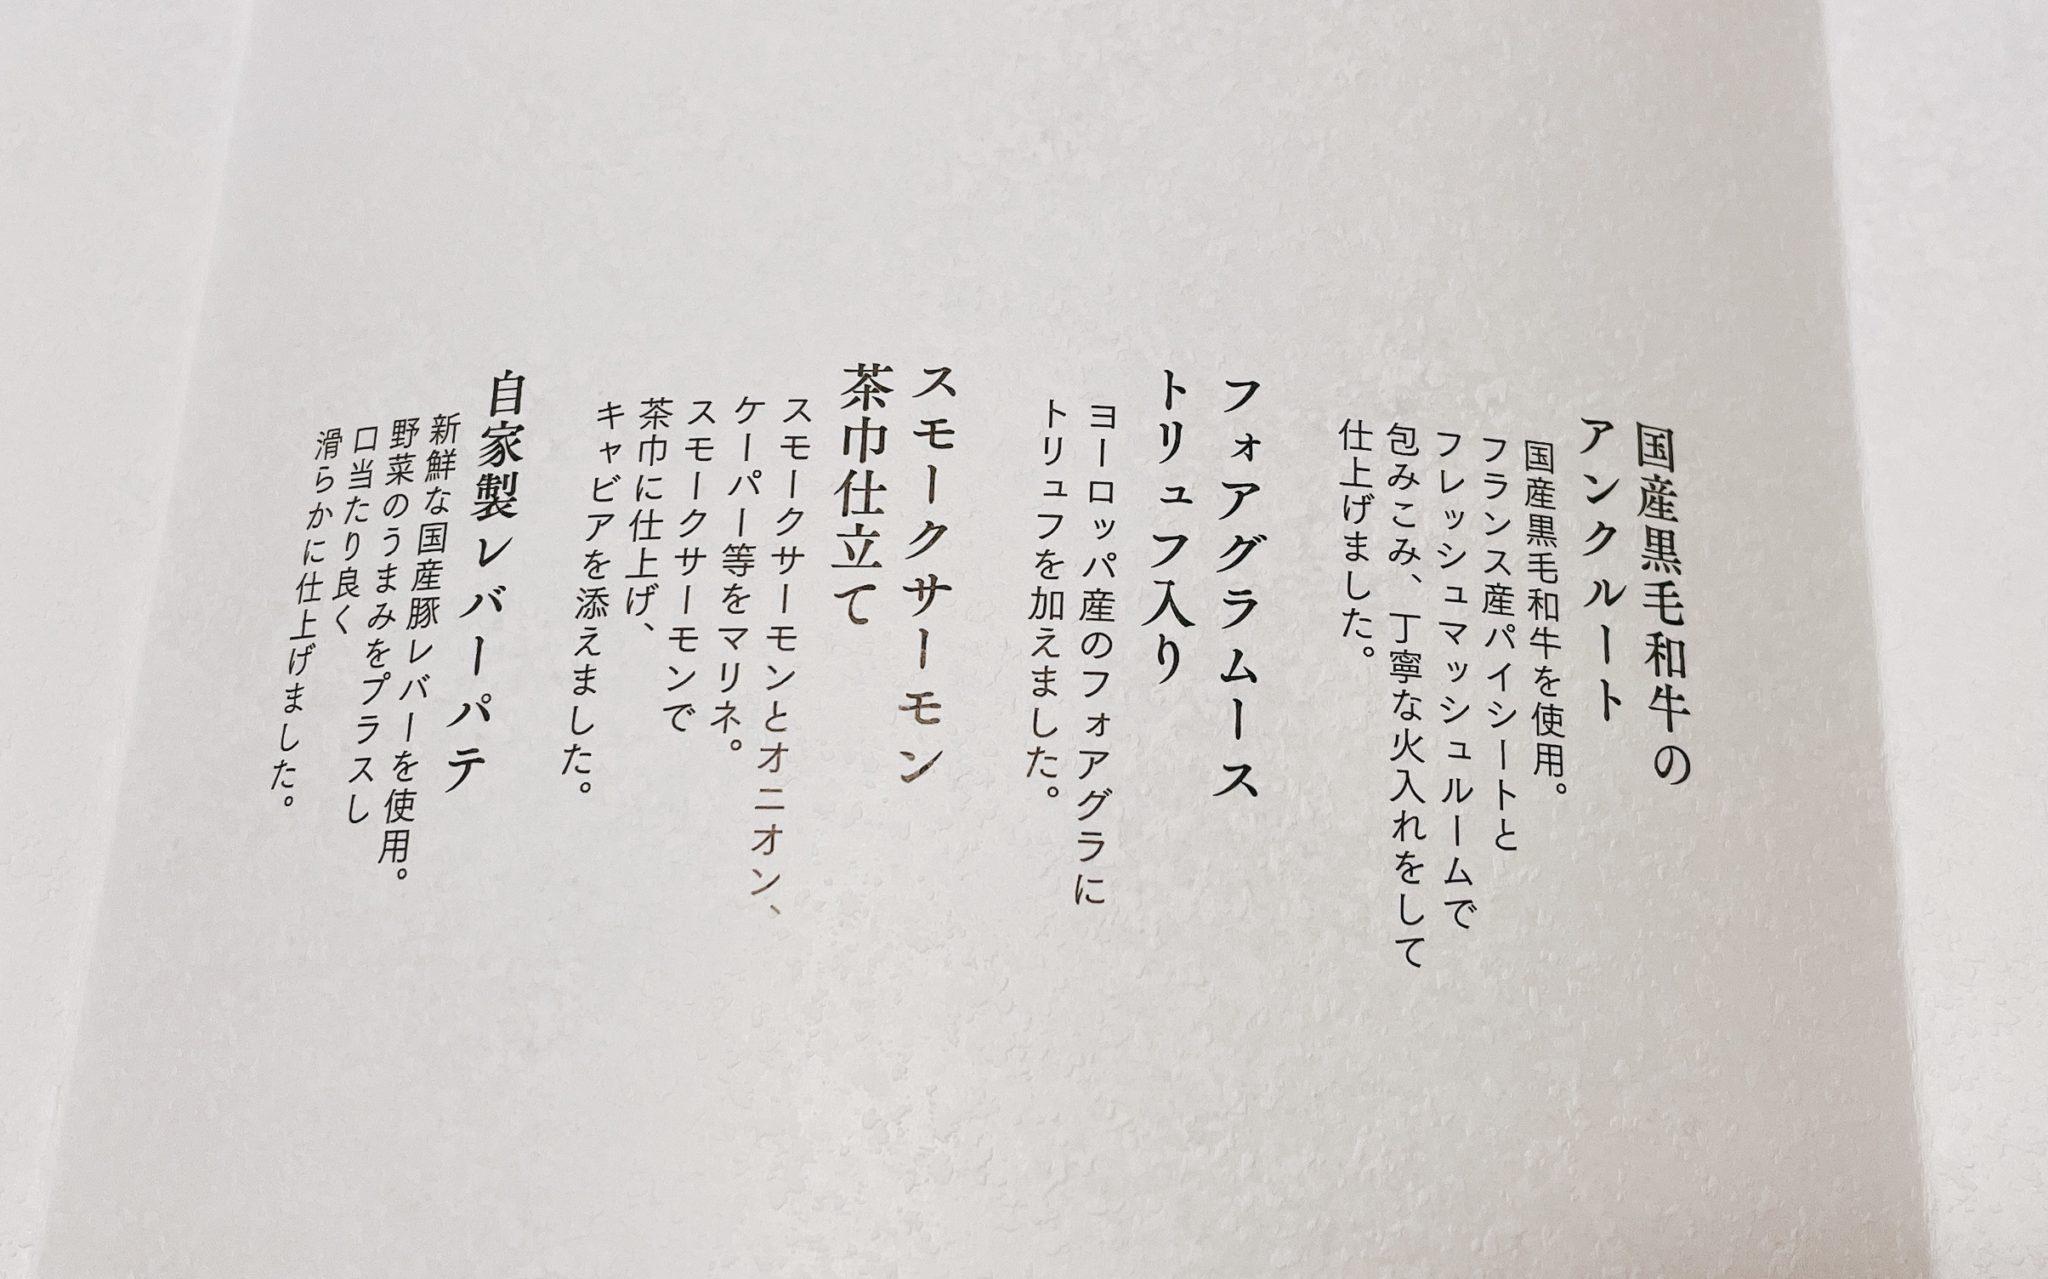 国産黒毛和牛の
アンクルート
国産黒毛和牛を使用。
フランス産パイシートと
フレッシュマッシュルームで
包みこみ、丁寧な火入れをして
仕上げました。
フォアグラムース
トリュフ入り
ヨーロッパ産のフォアグラに
トリュフを加えました。
スモークサーモン
茶巾仕立て
スモークサーモンとオニオン、
ケーパー等をマリネ。
スモークサーモンで
茶巾に仕上げ、
キャビアを添えました。
自家製レバーパテ
新鮮な国産豚レバーを使用。
野菜のうまみをプラスし
口当たり良く
滑らかに仕上げました。